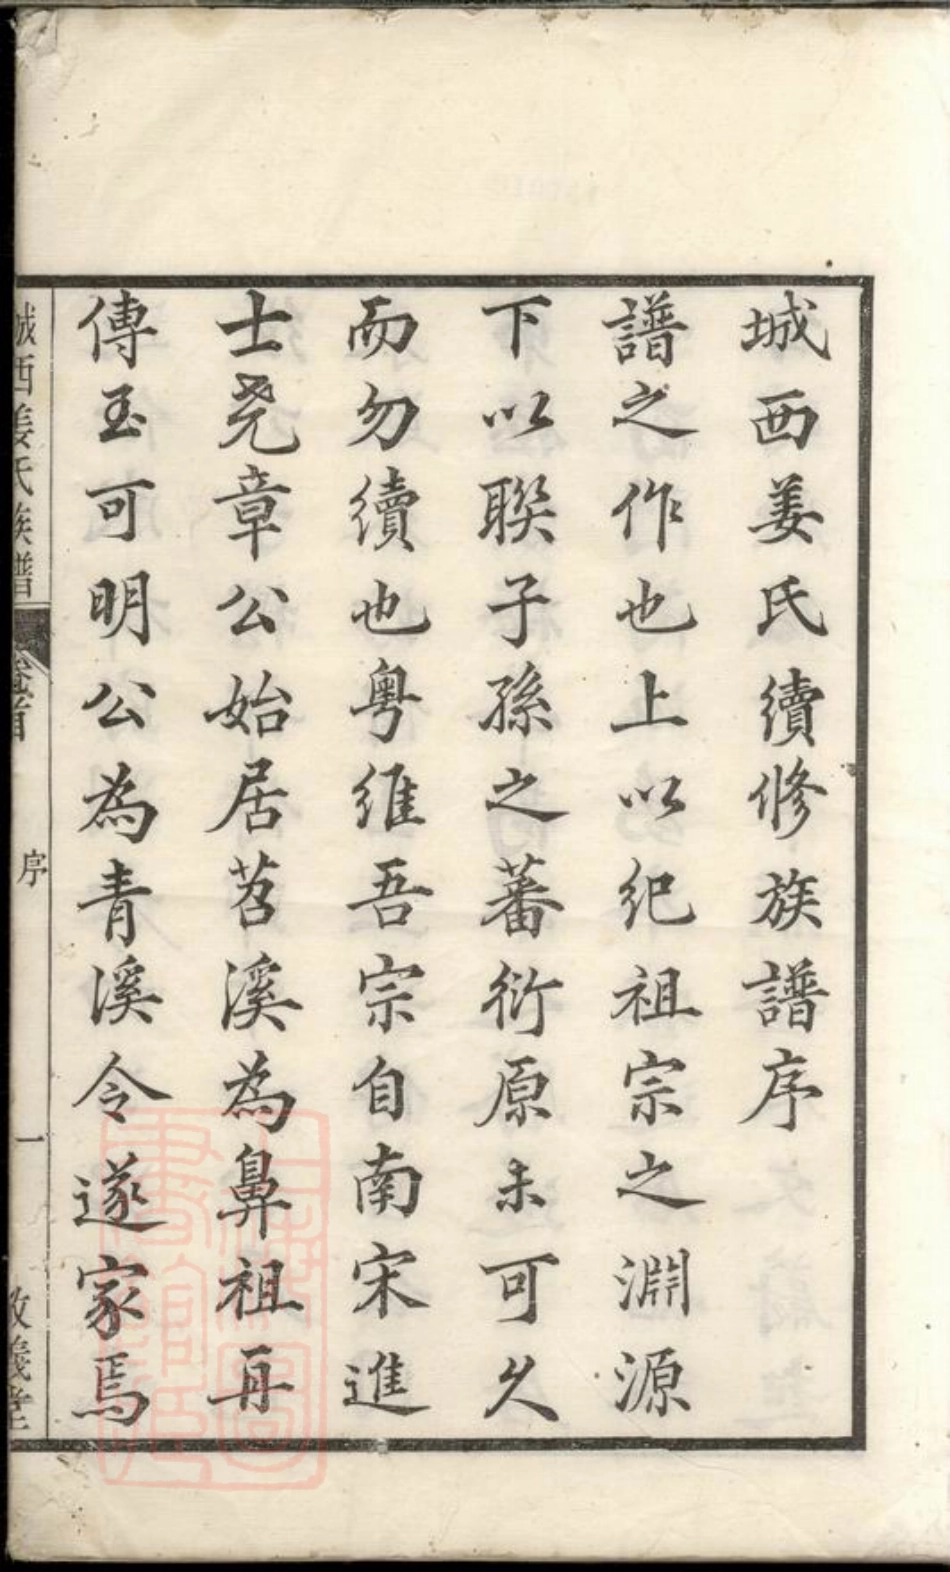 城西姜氏續修族譜序
譜之作也上以紀祖宗之淵源
下以聯子孫之蕃衍原未可久
而勿續也粤維吾宗自南宋進
士尧章公始居苕溪為鼻祖再
傳玉可明公為青溪令遂家焉
城西姜氏族譜
卷首
序
一
敦義堂
上海圖書館藏